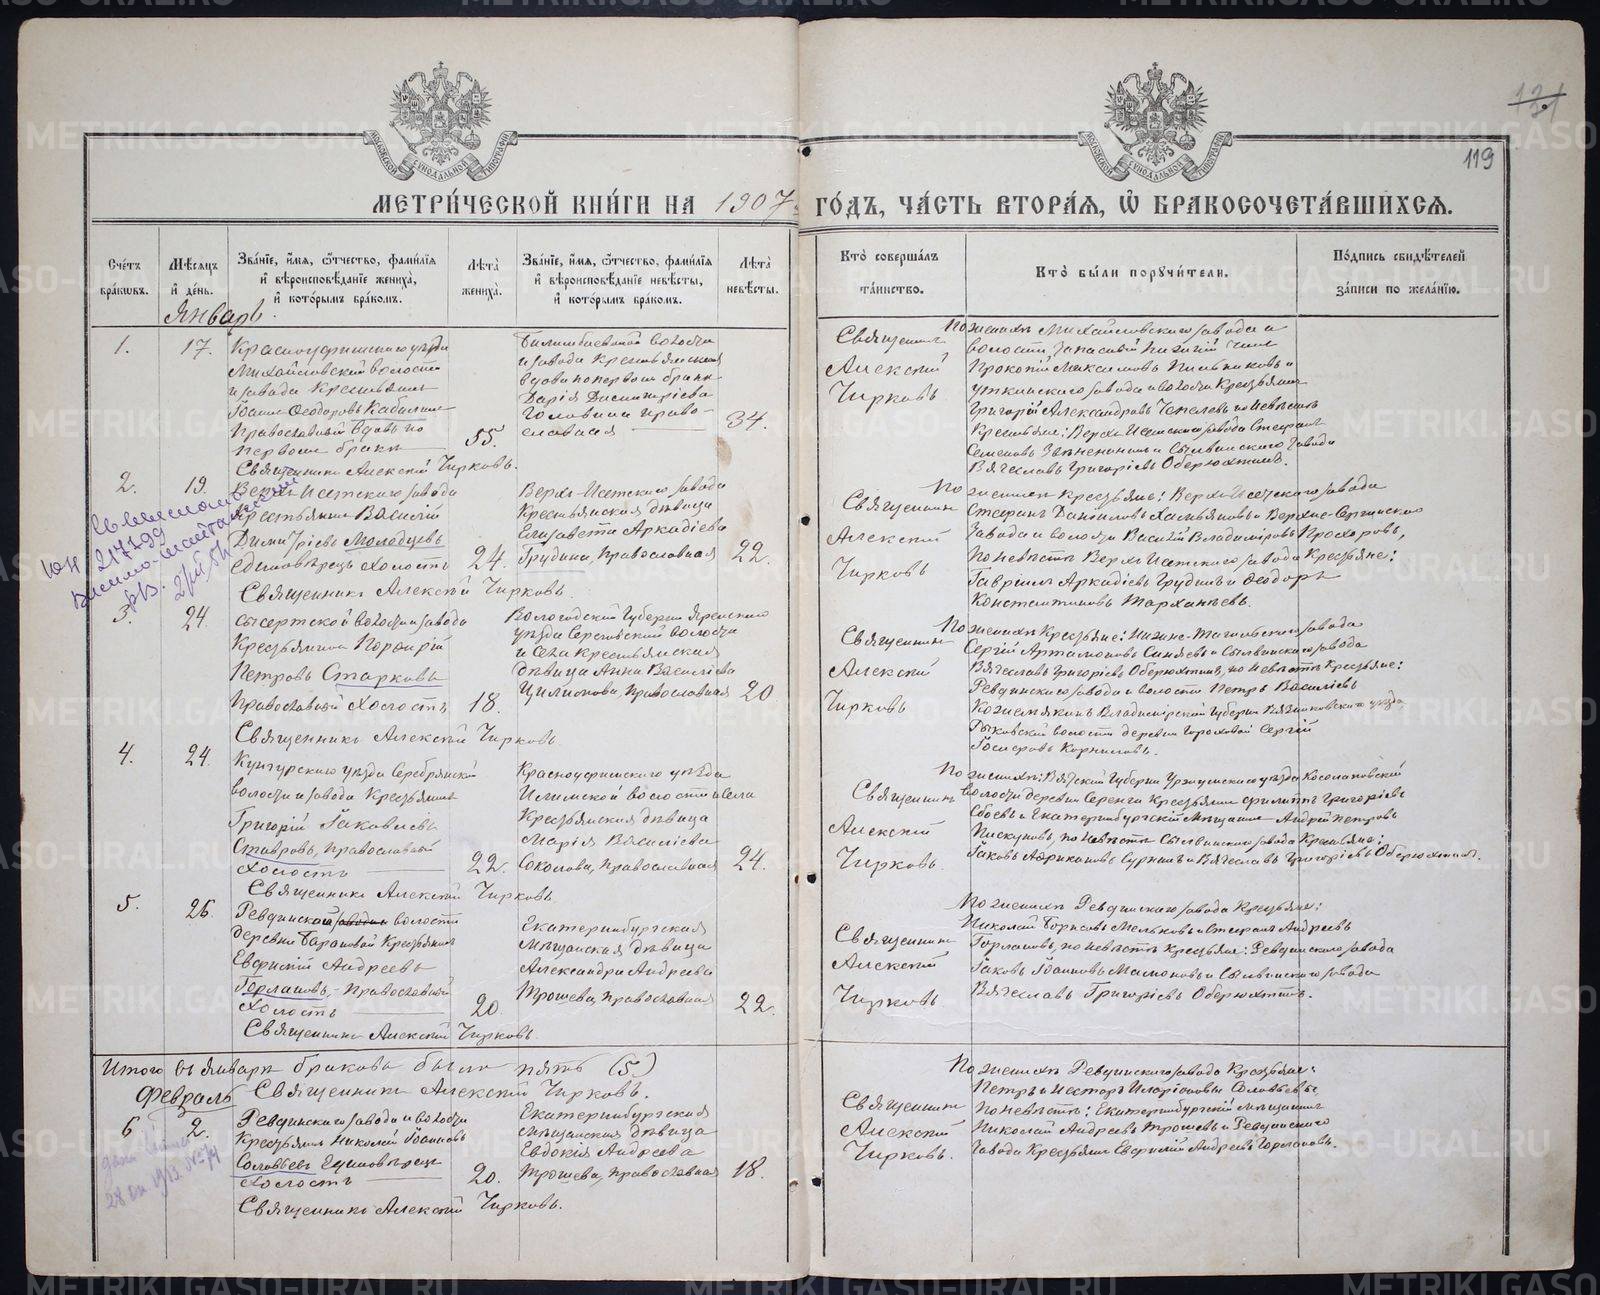 121
119
МЕТРИ́ЧЕСКОЙ КНИ́ГИ НА 1907 ГО́ДЪ, ЧА́СТЬ ВТОРА́Я, Ѡ БРАКОСОЧЕТА́ВШИХСЯ.
Сче́тъ бра́кѡвъ.
Мѣ́сяцъ и҆ де́нь.
Зва́нїе, и҆́мя, ѻ҆́тчество, фами́лїя
и҆ вѣроисповѣ́данїе жениха̀,
и҆ кото́рымъ бра́комъ.
Лѣ́та жениха̀.
Зва́нїе, и҆́мя, ѻ҆́тчество, фами́лїя
и҆ вѣроисповѣ́данїе невѣ́сты,
и҆ кото́рымъ бра́комъ.
Лѣ́та невѣ́сты.
Кто̀ соверша́лъ та́инство.
Кто̀ бы́ли порꙋчи́тели.
По́дпись свидѣ́телей за́писи по жела́нїю.
Январь.
1. 17.
Красноуфимскаго уѣзда
Михайловской волости
и завода Крестьянинъ
Іоаннъ Ѳеодоровъ
Православный вдовъ по
первомъ бракѣ
55.
Билимбаевской волости
и завода Крестьянская
вдова по первомъ бракѣ
Дарія Димитріева
Головина право-
славная
34.
Священникъ Алексій Чирковъ.
Священникъ
Алексій
Чирковъ
По женихѣ Михайловскаго завода и
волости, запасный нижній чинъ
Прокопій Максимовъ и
Уткинскаго завода и волости Крестьянинъ
Григорій Александровъ Чепелевъ по невѣстѣ
Крестьяне: Верхъ-Исетскаго завода Стефанъ
Семеновъ и Сылвинскаго завода
Вячеславъ Григоріевъ Оберюхтинъ.
2. 19.
Верхъ-Исетскаго завода
Крестьянинъ Василій
Димитріевъ Молодцевъ
единовѣрецъ холостъ
24.
Верхъ-Исетскаго завода
Крестьянская дѣвица
Елизавета Аркадіева
Грудина, православная
22.
Священникъ Алексій Чирковъ.
Священникъ
Алексій
Чирковъ
По женихѣ Крестьяне: Верхъ-Исетскаго завода
Стефанъ Даниловъ и Верхне-Сергинскаго
завода и волости Василій Владиміровъ Прохоровъ,
по невѣстѣ Верхъ-Исетскаго завода Крестьяне:
Гавріилъ Аркадіевъ Грудинъ и Ѳеодоръ
Константиновъ Тарханѣевъ.
3. 24.
Сысертской волости и завода
Крестьянинъ Порфирій
Петровъ Старковъ
Православный холостъ
18.
Вологодской Губерніи Яренскаго
уѣзда Сереговской волости
и села Крестьянская
дѣвица Анна Василіева
православная
20
Священникъ Алексій Чирковъ
Священникъ
Алексій
Чирковъ
По женихѣ Крестьяне: Нижне-Тагильскаго завода
Сергій Артамоновъ Синяевъ и Сылвинскаго завода
Вячеславъ Григоріевъ Оберюхтинъ, по невѣстѣ Крестьяне:
Ревдинскаго завода и волости Петръ Василіевъ
Кожемякинъ Владимірской Губерніи Вязниковскаго уѣзда
Рыковской волости деревни Гороховой Сергій
Корниловъ.
4. 24.
Кунгурскаго уѣзда Серебрянской
волости и завода Крестьянинъ
Григорій Іаковлевъ
Ставровъ, православный
холостъ
22.
Красноуфимскаго уѣзда
Иргинской волости и села
Крестьянская дѣвица
Марія Василіева
Соколова, православная
24.
Священникъ Алексій Чирковъ
Священникъ
Алексій
Чирковъ
По женихѣ: Вятской Губерніи Уржумскаго уѣзда Косолаповской
волости деревни Серенга Крестьянинъ Филиппъ Григоріевъ
Сбоевъ и Екатеринбургскій Мѣщанинъ Андрей Петровъ
Пискуновъ, по невѣстѣ Сылвинскаго завода Крестьяне:
Іаковъ Африкановъ Суринъ и Вячеславъ Григоріевъ Оберюхтинъ.
5. 26.
Ревдинской волости
деревни Барановой Крестьянинъ
Евфимій Андреевъ
Горлановъ, Православный
холостъ
20.
Екатеринбургская
Мѣщанская дѣвица
Александра Андреева
Трошева, православная
22.
Священникъ Алексій Чирковъ.
Священникъ
Алексій
Чирковъ
По женихѣ Ревдинскаго завода Крестьяне:
Николай Борисовъ Мельковъ и Стефанъ Андреевъ
Горлановъ, по невѣстѣ Крестьяне: Ревдинскаго завода
Іаковъ Іоанновъ Мамоновъ и Сылвинскаго завода
Вячеславъ Григоріевъ Оберюхтинъ.
Итого въ Январѣ браковъ было пять (5)
Священникъ Алексій Чирковъ.
Февраль
6 2.
Ревдинскаго завода и волости
Крестьянинъ Николай Іоанновъ
Соловьевъ Единовѣрецъ
холостъ
20.
Екатеринбургская
мѣщанская дѣвица
Евдокія Андреева
Трошева, православная
18.
Священникъ Алексій Чирковъ.
Священникъ
Алексій
Чирковъ.
По женихѣ Ревдинскаго завода Крестьяне:
Петръ и Несторъ Иларіоновы Соловьевы
По невѣстѣ: Екатеринбургскій мѣщанинъ
Николай Андреевъ Трошевъ и Ревдинскаго
завода Крестьянинъ Евфимій Андреевъ Горлановъ.
METRIKI.GASO-URAL.RU